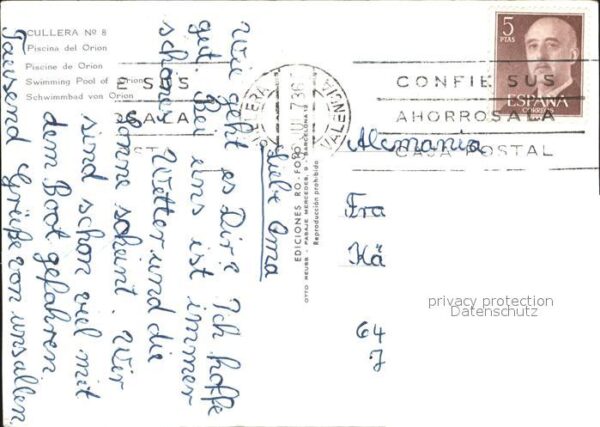 CULLERA Nº 8
Piscina del Orion
Piscine de Orion
Swimming Pool of Orion
Schwimmbad von Orion
Liebe Oma
Wie geht es Dir? Ich hoffe
gut. Bei uns ist immer
schönes Wetter und die
Sonne scheint. Wir
sind schon viel mit
dem Boot gefahren.
Tausend Grüße von uns allen
EDICIONES RO-FOTO
OTTO REUSS - PASAJE MERCEDES, 9 - BARCELONA
Reproducción prohibida
CONFIE SUS
AHORROS A LA
CAJA POSTAL
5
PTAS
ESPAÑA
CORREOS
Alemania
Fra
Kä
64
J
privacy protection
Datenschutz